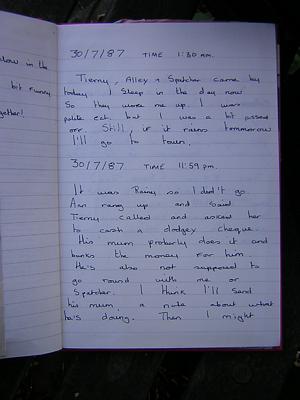 low in the
bit funny
gether!
30/7/87 TIME 1:30 am.
Tierny, Alley + Spatcher came by
today. I sleep in the day now
So they woke me up. I was
polite eat, but I was a bit pissed
off. Still, if it rains tommorrow
I'll go to town.
30/7/87 TIME 11:59 pm.
It was Rainy so I didn't go.
Ann rang up and said
Tierny called and asked her
to cash a dodgey cheque.
His mum probarly does it and
banks the money for him.
He's also not supposed to
go round with me or
Spatcher. I think I'll send
his mum, a note about what
he's doing. Then I might